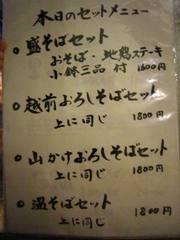 本日のセットメニュー
○盛そばセット
おそば・地鶏ステーキ
小鉢三品 付 1600円
○越前おろしそばセット
上に同じ 1800円
○山かけおろしそばセット
上に同じ 1800円
○温そばセット
上に同じ 1800円